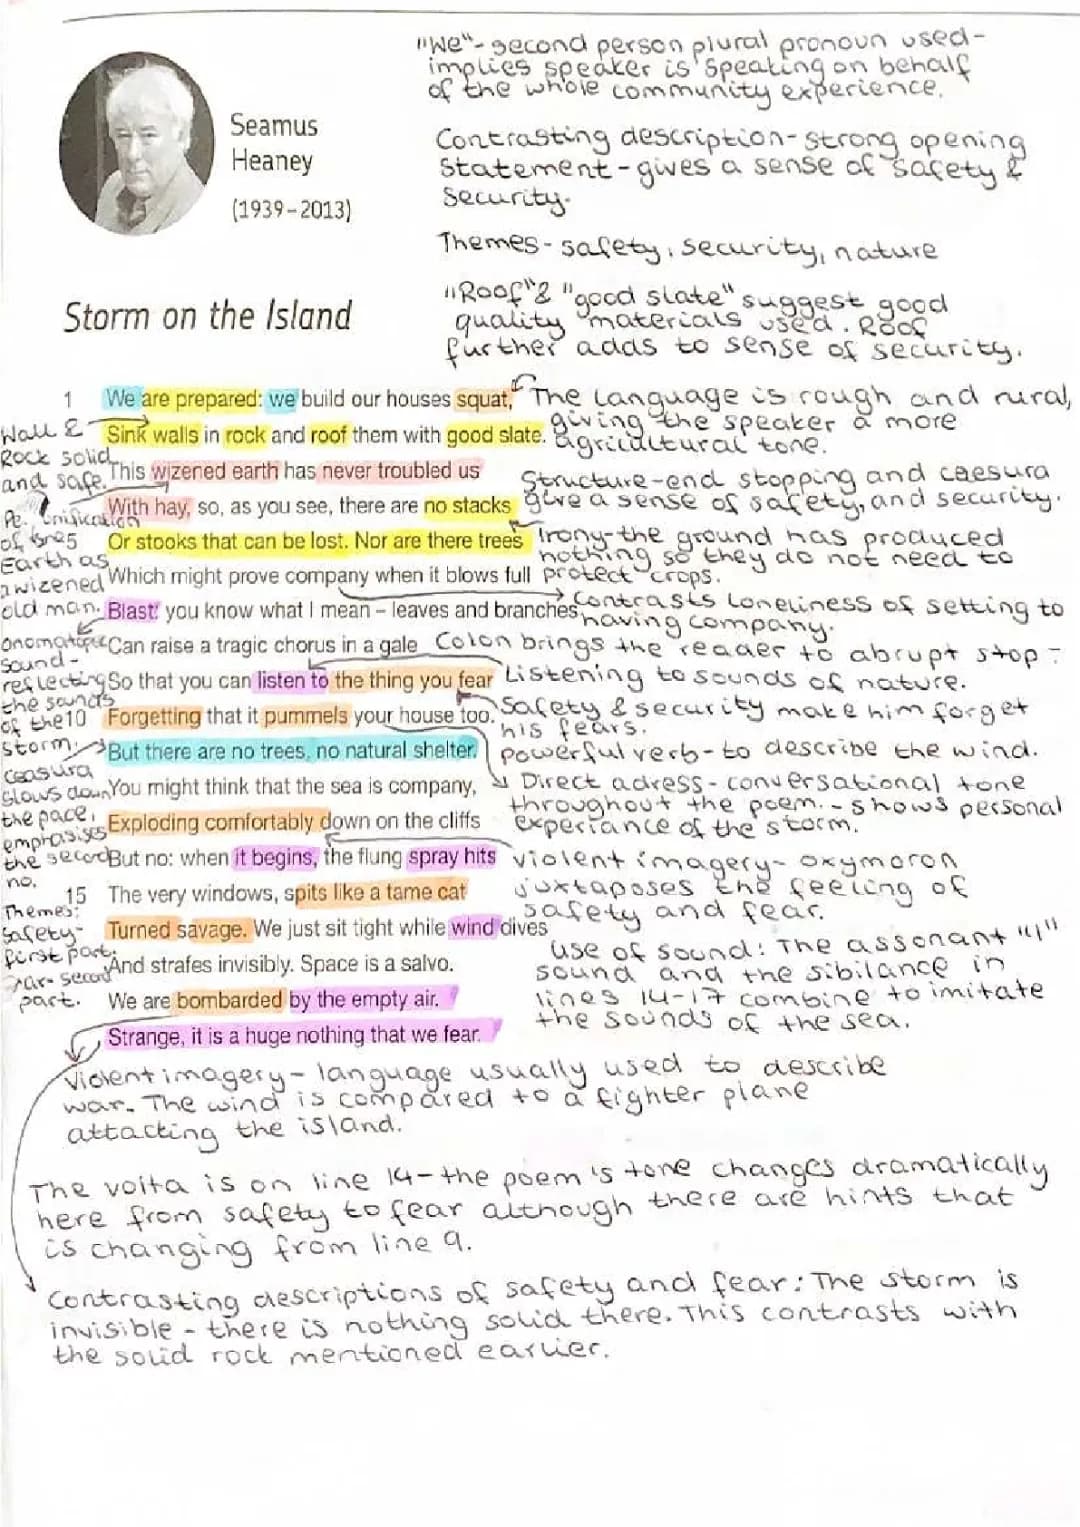 "We"- second person plural pronoun used-
implies speaker is speaking on behalf
of the whole community experience.
Seamus
Heaney
(1939-2013)
Contrasting description- strong opening
Statement - gives a sense of safety &
Security.
Themes- safety, security, nature
"Roof" & "good slate" suggest good
quality materials used. Roof
further adds to sense of security.
Storm on the Island
1 We are prepared: we build our houses squat,
Sink walls in rock and roof them with good slate.
This wizened earth has never troubled us
With hay, so, as you see, there are no stacks
5 Or stooks that can be lost. Nor are there trees
Which might prove company when it blows full
Blast: you know what I mean – leaves and branches
Can raise a tragic chorus in a gale
So that you can listen to the thing you fear
10 Forgetting that it pummels your house too.
But there are no trees, no natural shelter.
You might think that the sea is company,
Exploding comfortably down on the cliffs
But no: when it begins, the flung spray hits
15 The very windows, spits like a tame cat
Turned savage. We just sit tight while wind dives
And strafes invisibly. Space is a salvo.
We are bombarded by the empty air.
Strange, it is a huge nothing that we fear.
Wall &
Rock solid
and safe.
of
Earth as
a wizened
old man.
sound-
reflecting
the sounds
of the
storm.
Ceasura
slows down
the pace,
emphasises
the second
no.
Themes:
Safety-
first part.
second
part.
The language is rough and rural,
giving the speaker a more
agricultural tone.
Structure-end stopping and caesura
give a sense of safety, and security.
Irony-the ground has produced
nothing so they do not need to
protect crops.
Contrasts loneliness of setting to
having company.
Colon brings the reader to abrupt stop -
Listening to sounds of nature.
Safety & security make him forget
his fears.
powerful verb- to describe the wind.
Direct adress- conversational tone
throughout the poem. - shows personal
experiance of the storm.
violent imagery- oxymoron
juxtaposes the feeling of
safety and fear.
use of sound: The assonant "i"
sound and the sibilance in
lines 14-17 combine to imitate
the sounds of the sea.
Violent imagery- language usually used to describe
war. The wind is compared to a fighter plane
attacking the island.
The volta is on line 14-the poem's tone changes dramatically
here from safety to fear although there are hints that
is changing from line 9.
Contrasting descriptions of safety and fear: The storm is
invisible - there is nothing solid there. This contrasts with
the solid rock mentioned earlier.